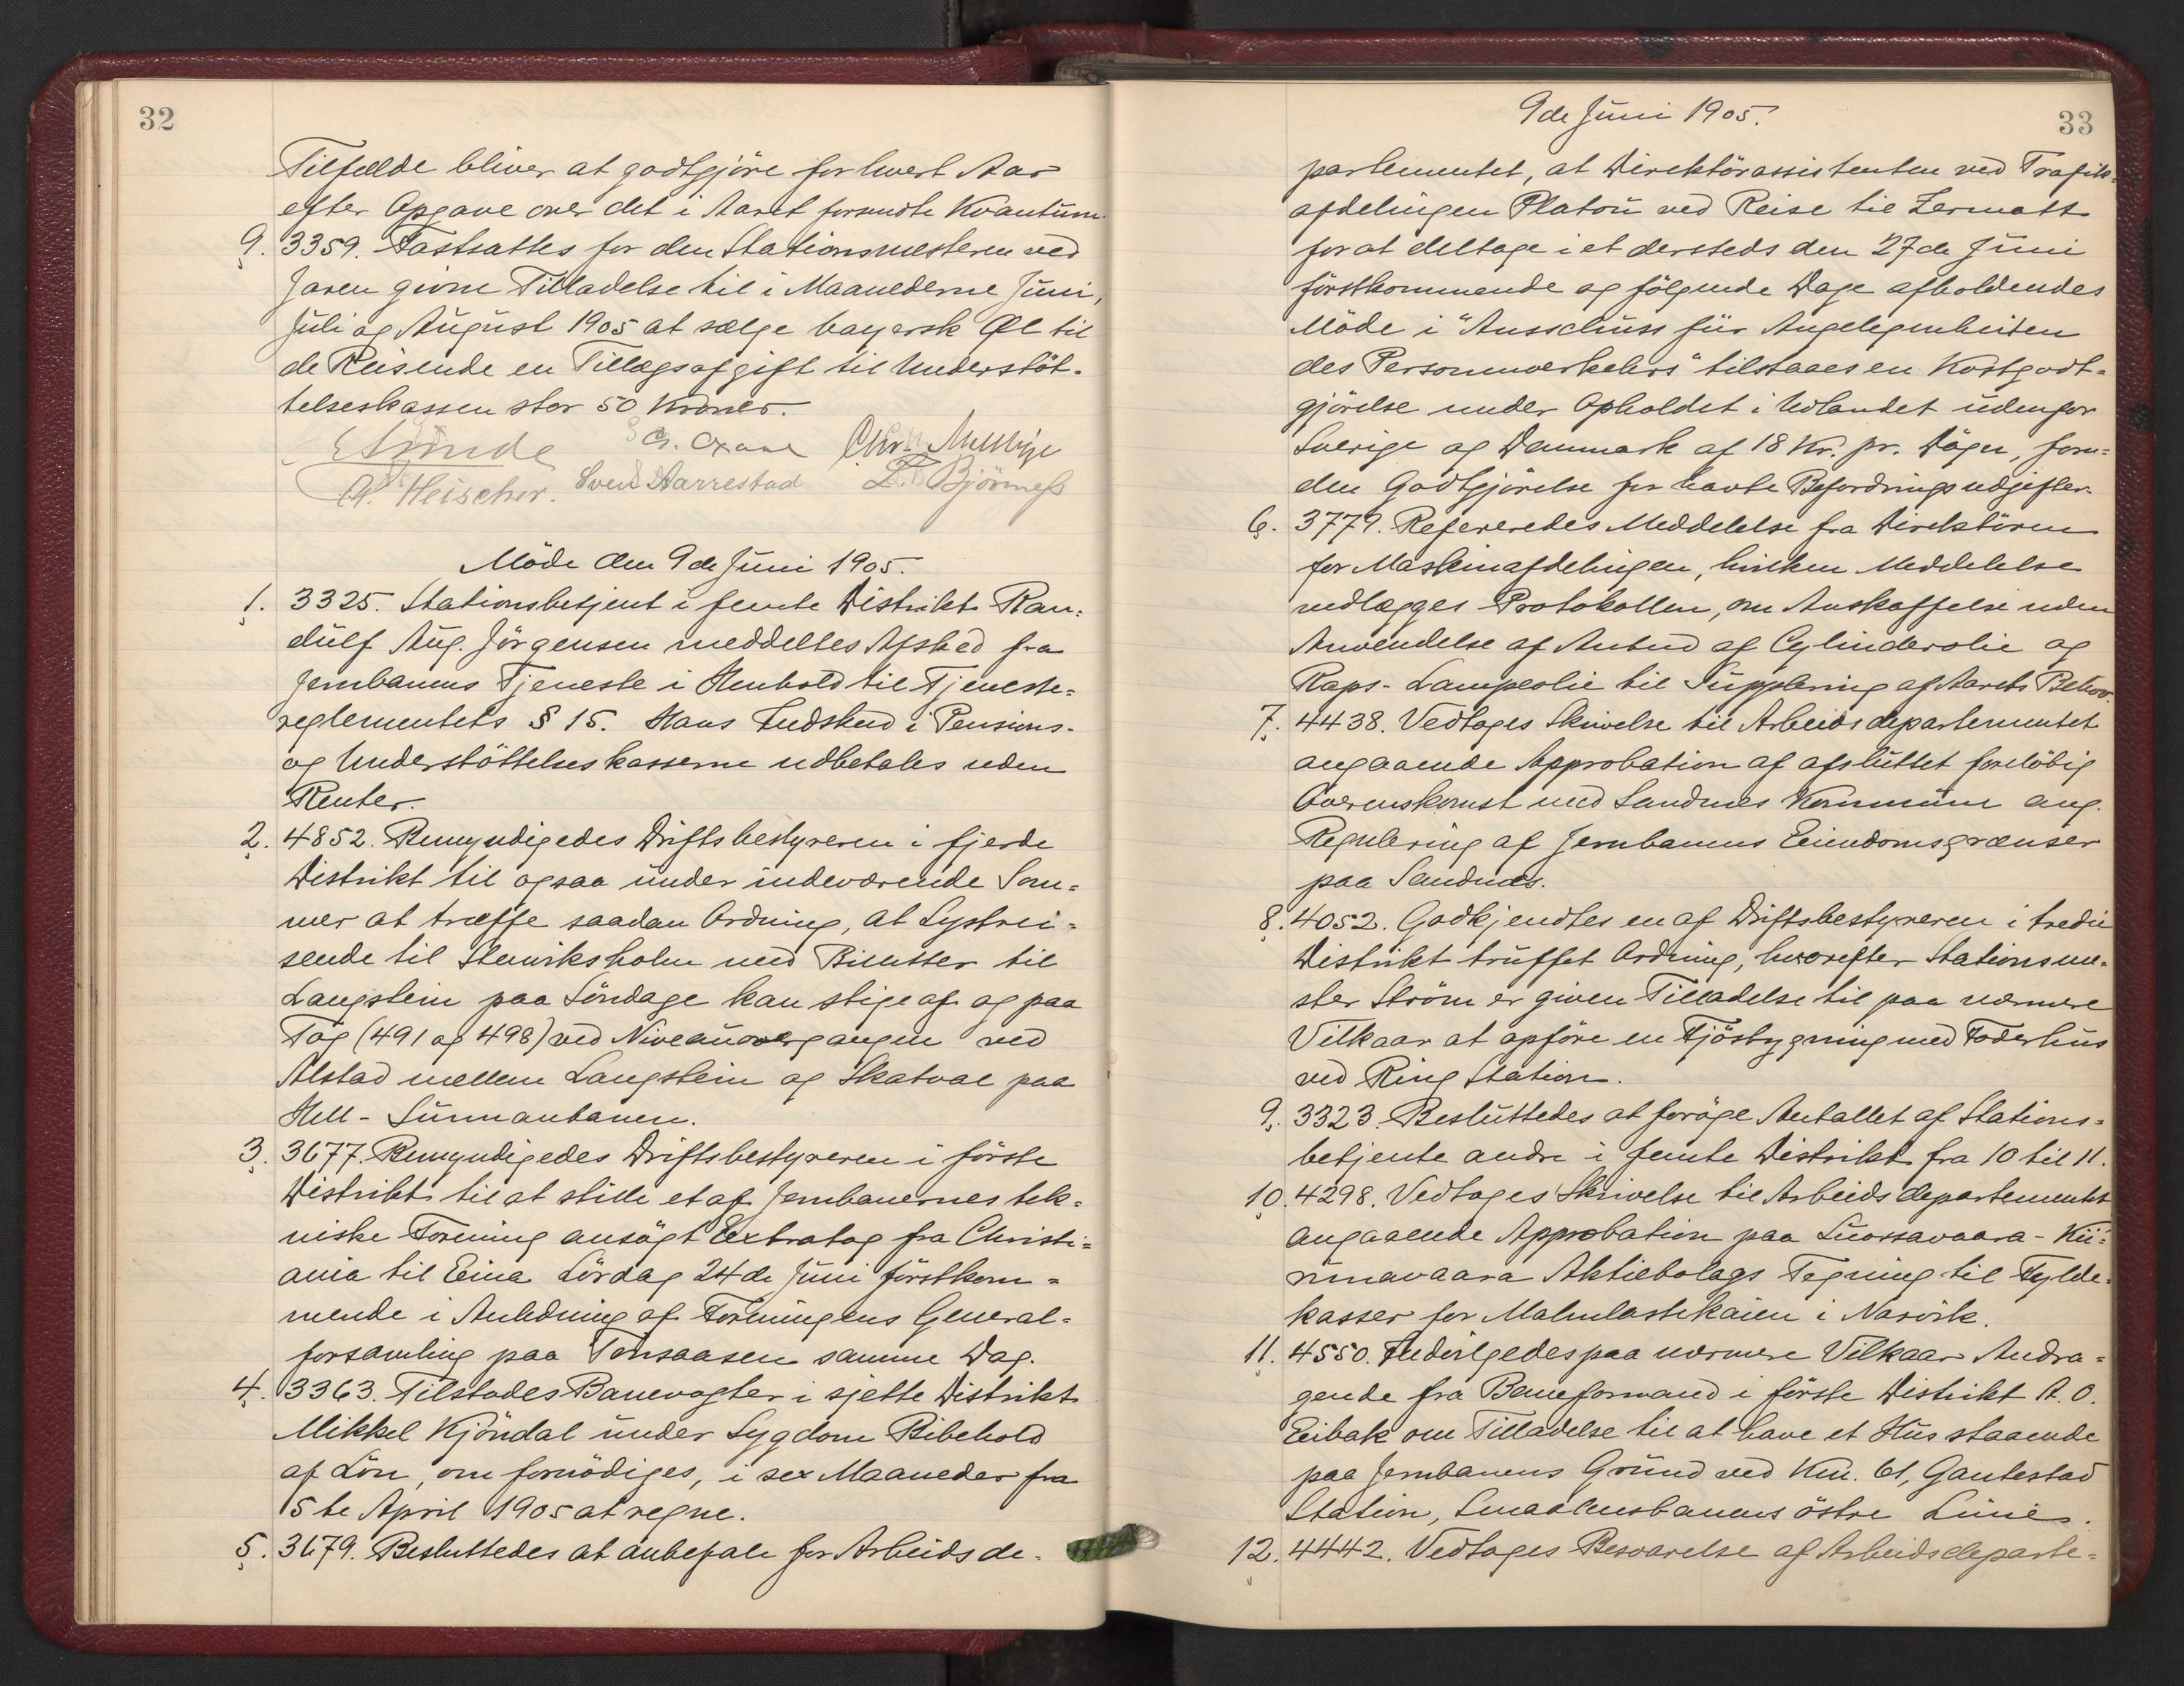 32
Tilfælde bliver at godtgjöre for hvert Aar
efter Opgave over det i Aaret forsendte Kvantum.
9. 3359. Fastsattes for den Stationsmesteren ved
Jaren givne Tilladelse til i Maanederne Juni,
Juli og August 1905 at sælge bayersk Øl til
de Reisende en Tillægsafgift til Understöt-
telseskassen stor 50 Kroner.
Chr.
Svend Aarrestad
Möde den 9de Juni 1905.
1. 3325. Stationsbetjent i femte Distrikt Ran-
dulf Aug. Jörgensen meddeltes Afsked fra
Jernbanens Tjeneste i Henhold til Tjeneste-
reglementets § 15. Hans Indskud i Pensions-
og Understöttelseskasserne udbetales uden
Renter.
2. 4852. Bemyndigedes Driftsbestyreren i fjerde
Distrikt til ogsaa under indeværende Som-
mer at træffe saadan Ordning, at Lystrei-
sende til Stenviksholm med Billetter til
Langstein paa Söndage kan stige af og paa
Tog (491 og 498) ved Niveauovergangen ved
Alstad mellem Langstein og Skatval paa
Hell-Sunnanbanen.
3. 3677. Bemyndigedes Driftsbestyreren i förste
Distrikt til at stille et af Jernbanernes tek-
niske Forening ansögt Extratog fra Christi-
ania til Eina Lördag 24de Juni förstkom-
mende i Anledning af Foreningens General-
forsamling paa Tonsaasen samme Dag.
4. 3363. Tilstodes Banevogter i sjette Distrikt
Mikkel Kjöndal under Sygdom Bibehold
af Lön, om fornödiges, i sex Maaneder fra
5te April 1905 at regne.
5. 3679. Besluttedes at anbefale for Arbeidsde-
9de Juni 1905.
33
partementet, at Direktörassistenten ved Trafik-
afdelingen Platou ved Reise til Zermatt
for at deltage i et dersteds den 27de Juni
förstkommende og fölgende Dage afholdendes
Möde i "Ausschuss für Angelegenheiten
des Personenverkehrs" tilstaaes en Kostgodt-
gjörelse under Opholdet i Udlandet udenfor
Sverige og Danmark af 18 Kr. pr. Dögn, foru-
den Godtgjörelse for havte Befordringsudgifter.
6. 3779. Refereredes Meddelelse fra Direktören
for Maskinafdelingen, hvilken Meddelelse
vedlægges Protokollen, om Anskaffelse uden
Anvendelse af Anbud af Cylinderolie og
Raps-Lampeolie til Supplering af Aarets Behov.
7. 4438. Vedtoges Skrivelse til Arbeidsdepartementet
angaaende Approbation af afsluttet foreløbig
Overenskomst med Sandnes Kommune ang.
Regulering af Jernbanens Eiendomsgrænser
paa Sandnæs.
8. 4052. Godkjendtes en af Driftsbestyreren i tredie
Distrikt truffet Ordning, hvorefter Stationsme-
ster Ström er given Tilladelse til paa nærmere
Vilkaar at opföre en Fjösbygning med Foderhus
ved Ring Station.
9. 3323. Besluttedes at foröge Antallet af Stations-
betjente andre i femte Distrikt fra 10 til 11.
10. 4298. Vedtoges Skrivelse til Arbeidsdepartementet
angaaende Approbation paa Luossavaara-Kii-
runavaara Aktiebolags Tegning til Fylde-
kasser for Malmlastekaien i Narvik.
11. 4550. Indvilgedes paa nærmere Vilkaar Andra-
gende fra Baneformand i förste Distrikt A. O.
Eibak om Tilladelse til at have et Hus staaende
paa Jernbanens Grund ved Km. 61, Gautestad
Station, Smaalensbanens östre Linie.
12. 4442. Vedtoges Besvarelse af Arbeidsdeparte-